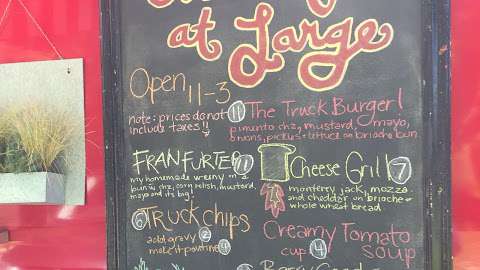 at Large
Open 11-3
note: prices do not
include taxes!!
11 The Truck Burger!
pimunto chz, mustard, mayo,
onions, pickles + lettuce on brioche bun
FRANFURTER 11
my homemade weeny in a
bun w chz, corn relish, mustard,
mayo and its big!
Cheese Grill 7
monterry jack, mozza
and cheddar on brioche or
whole wheat bread
6 TRUCK chips
add gravy 2
make it poutine 4
Creamy Tomato
cup 4 soup